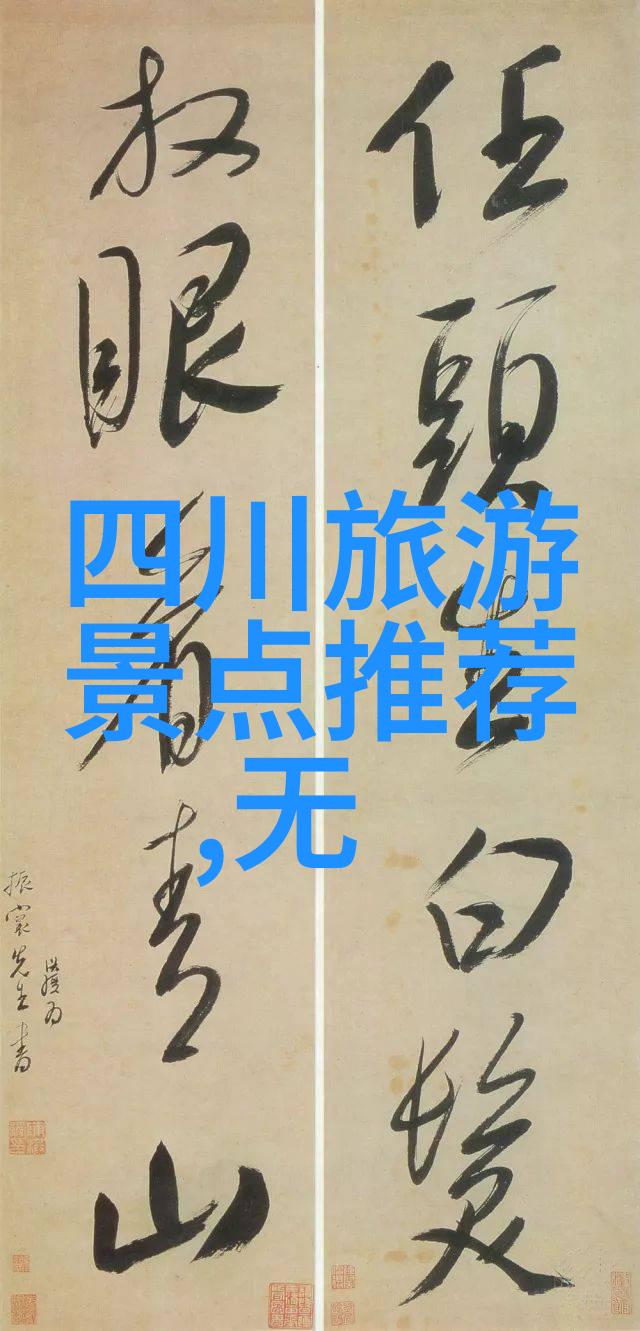 任頭生白髮
放眼看青山
振裳先生書
四川旅游
景点推荐
,无